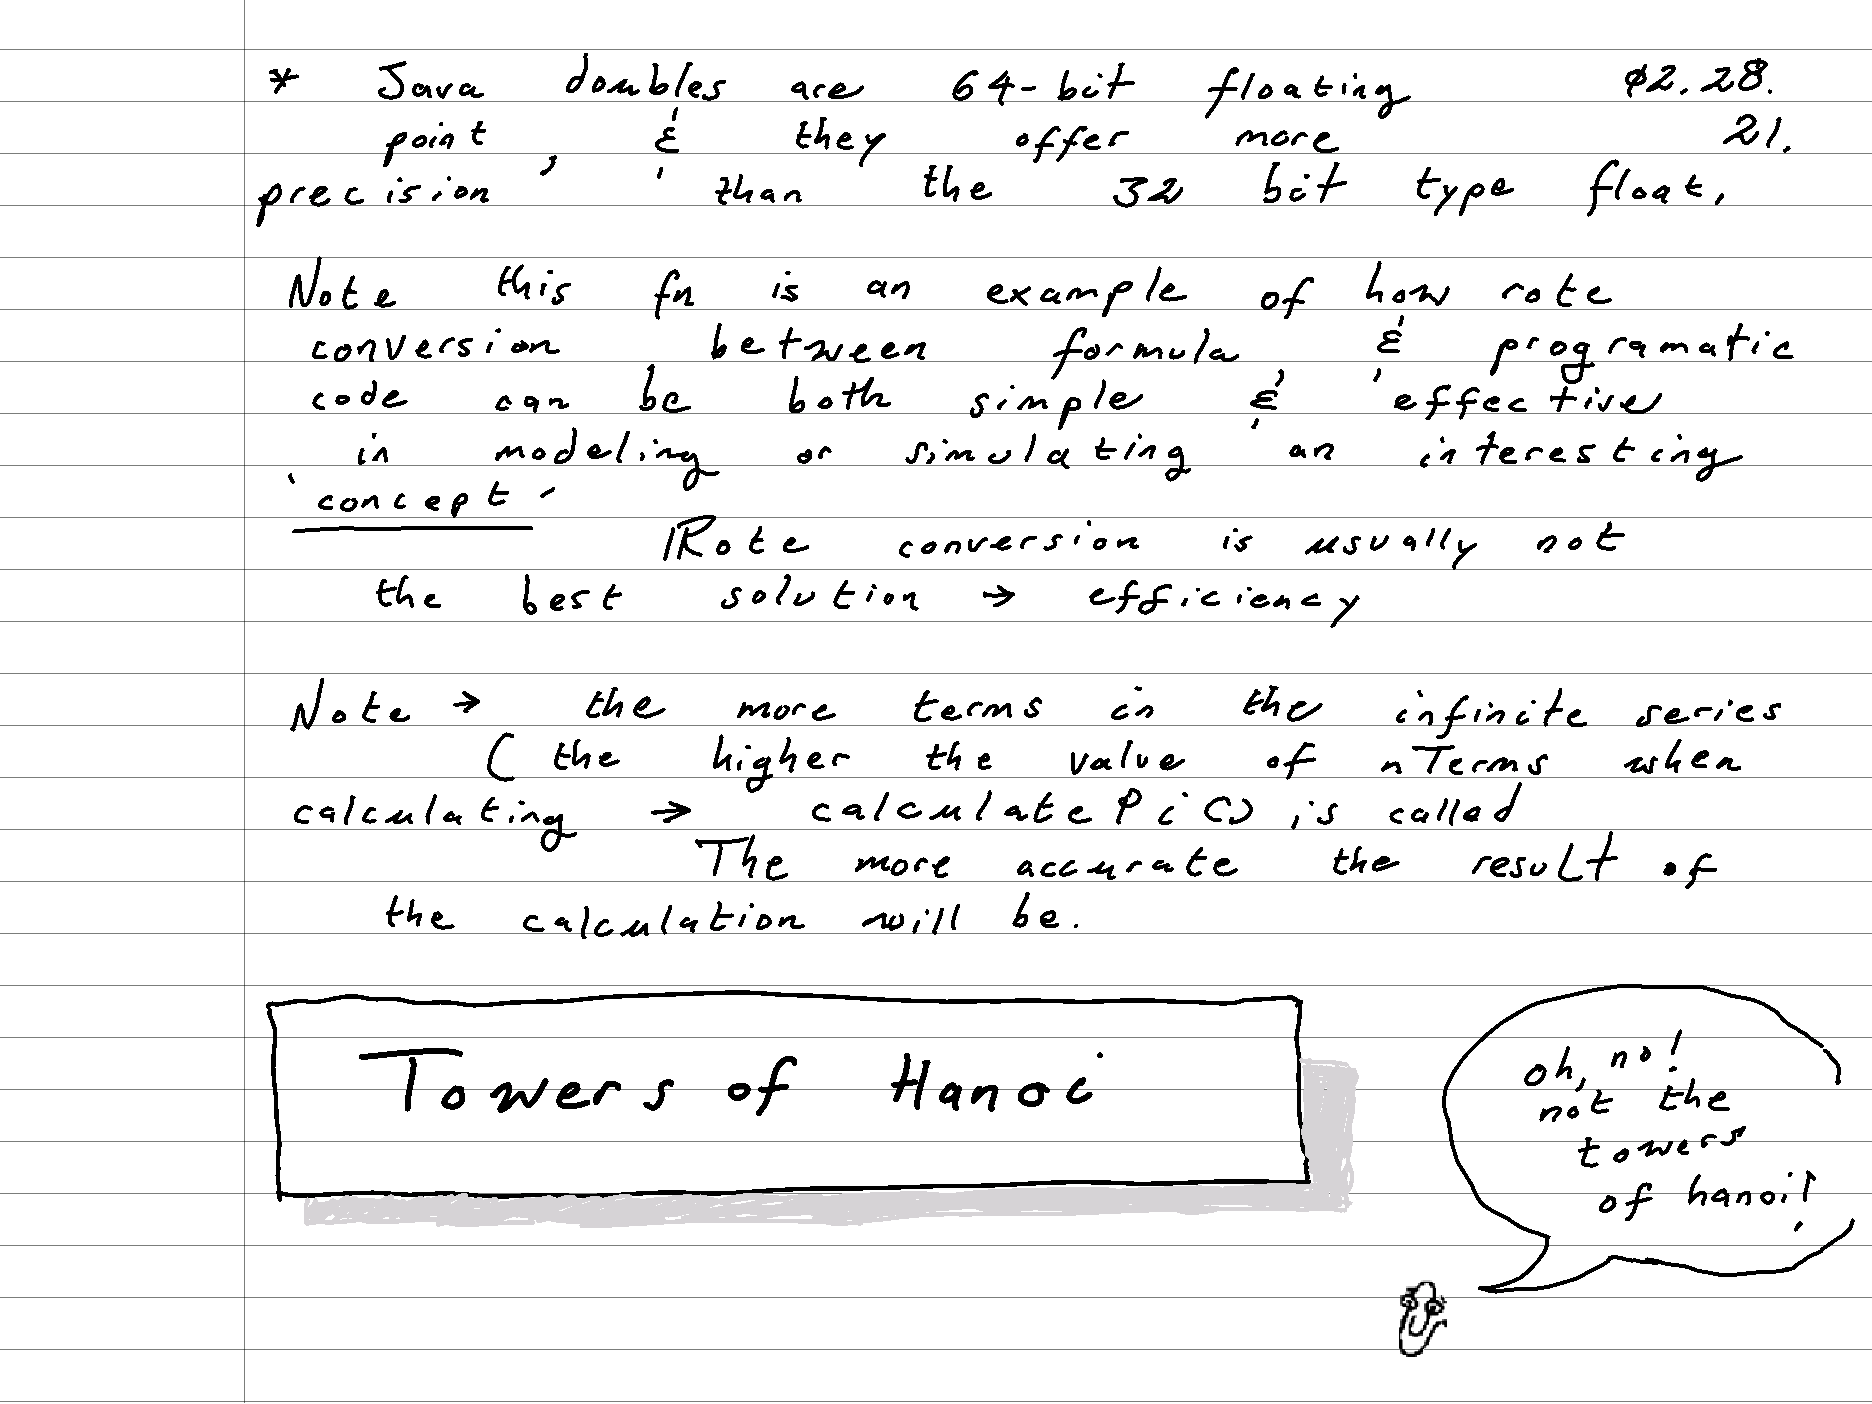 * Java doubles are 64-bit floating ϕ2.28.
point, & they offer more 21.
precision than the 32 bit type float.
Note this fn is an example of how rote
conversion between formula & programatic
code can be both simple & effective
in modeling or simulating an interesting
'concept'
Rote conversion is usually not
the best solution → efficiency
Note → the more terms in the infinite series
(the higher the value of nTerms when
calculating → calculatePi() is called
The more accurate the result of
the calculation will be.
Towers of Hanoi
oh, no!
not the
towers
of hanoi!